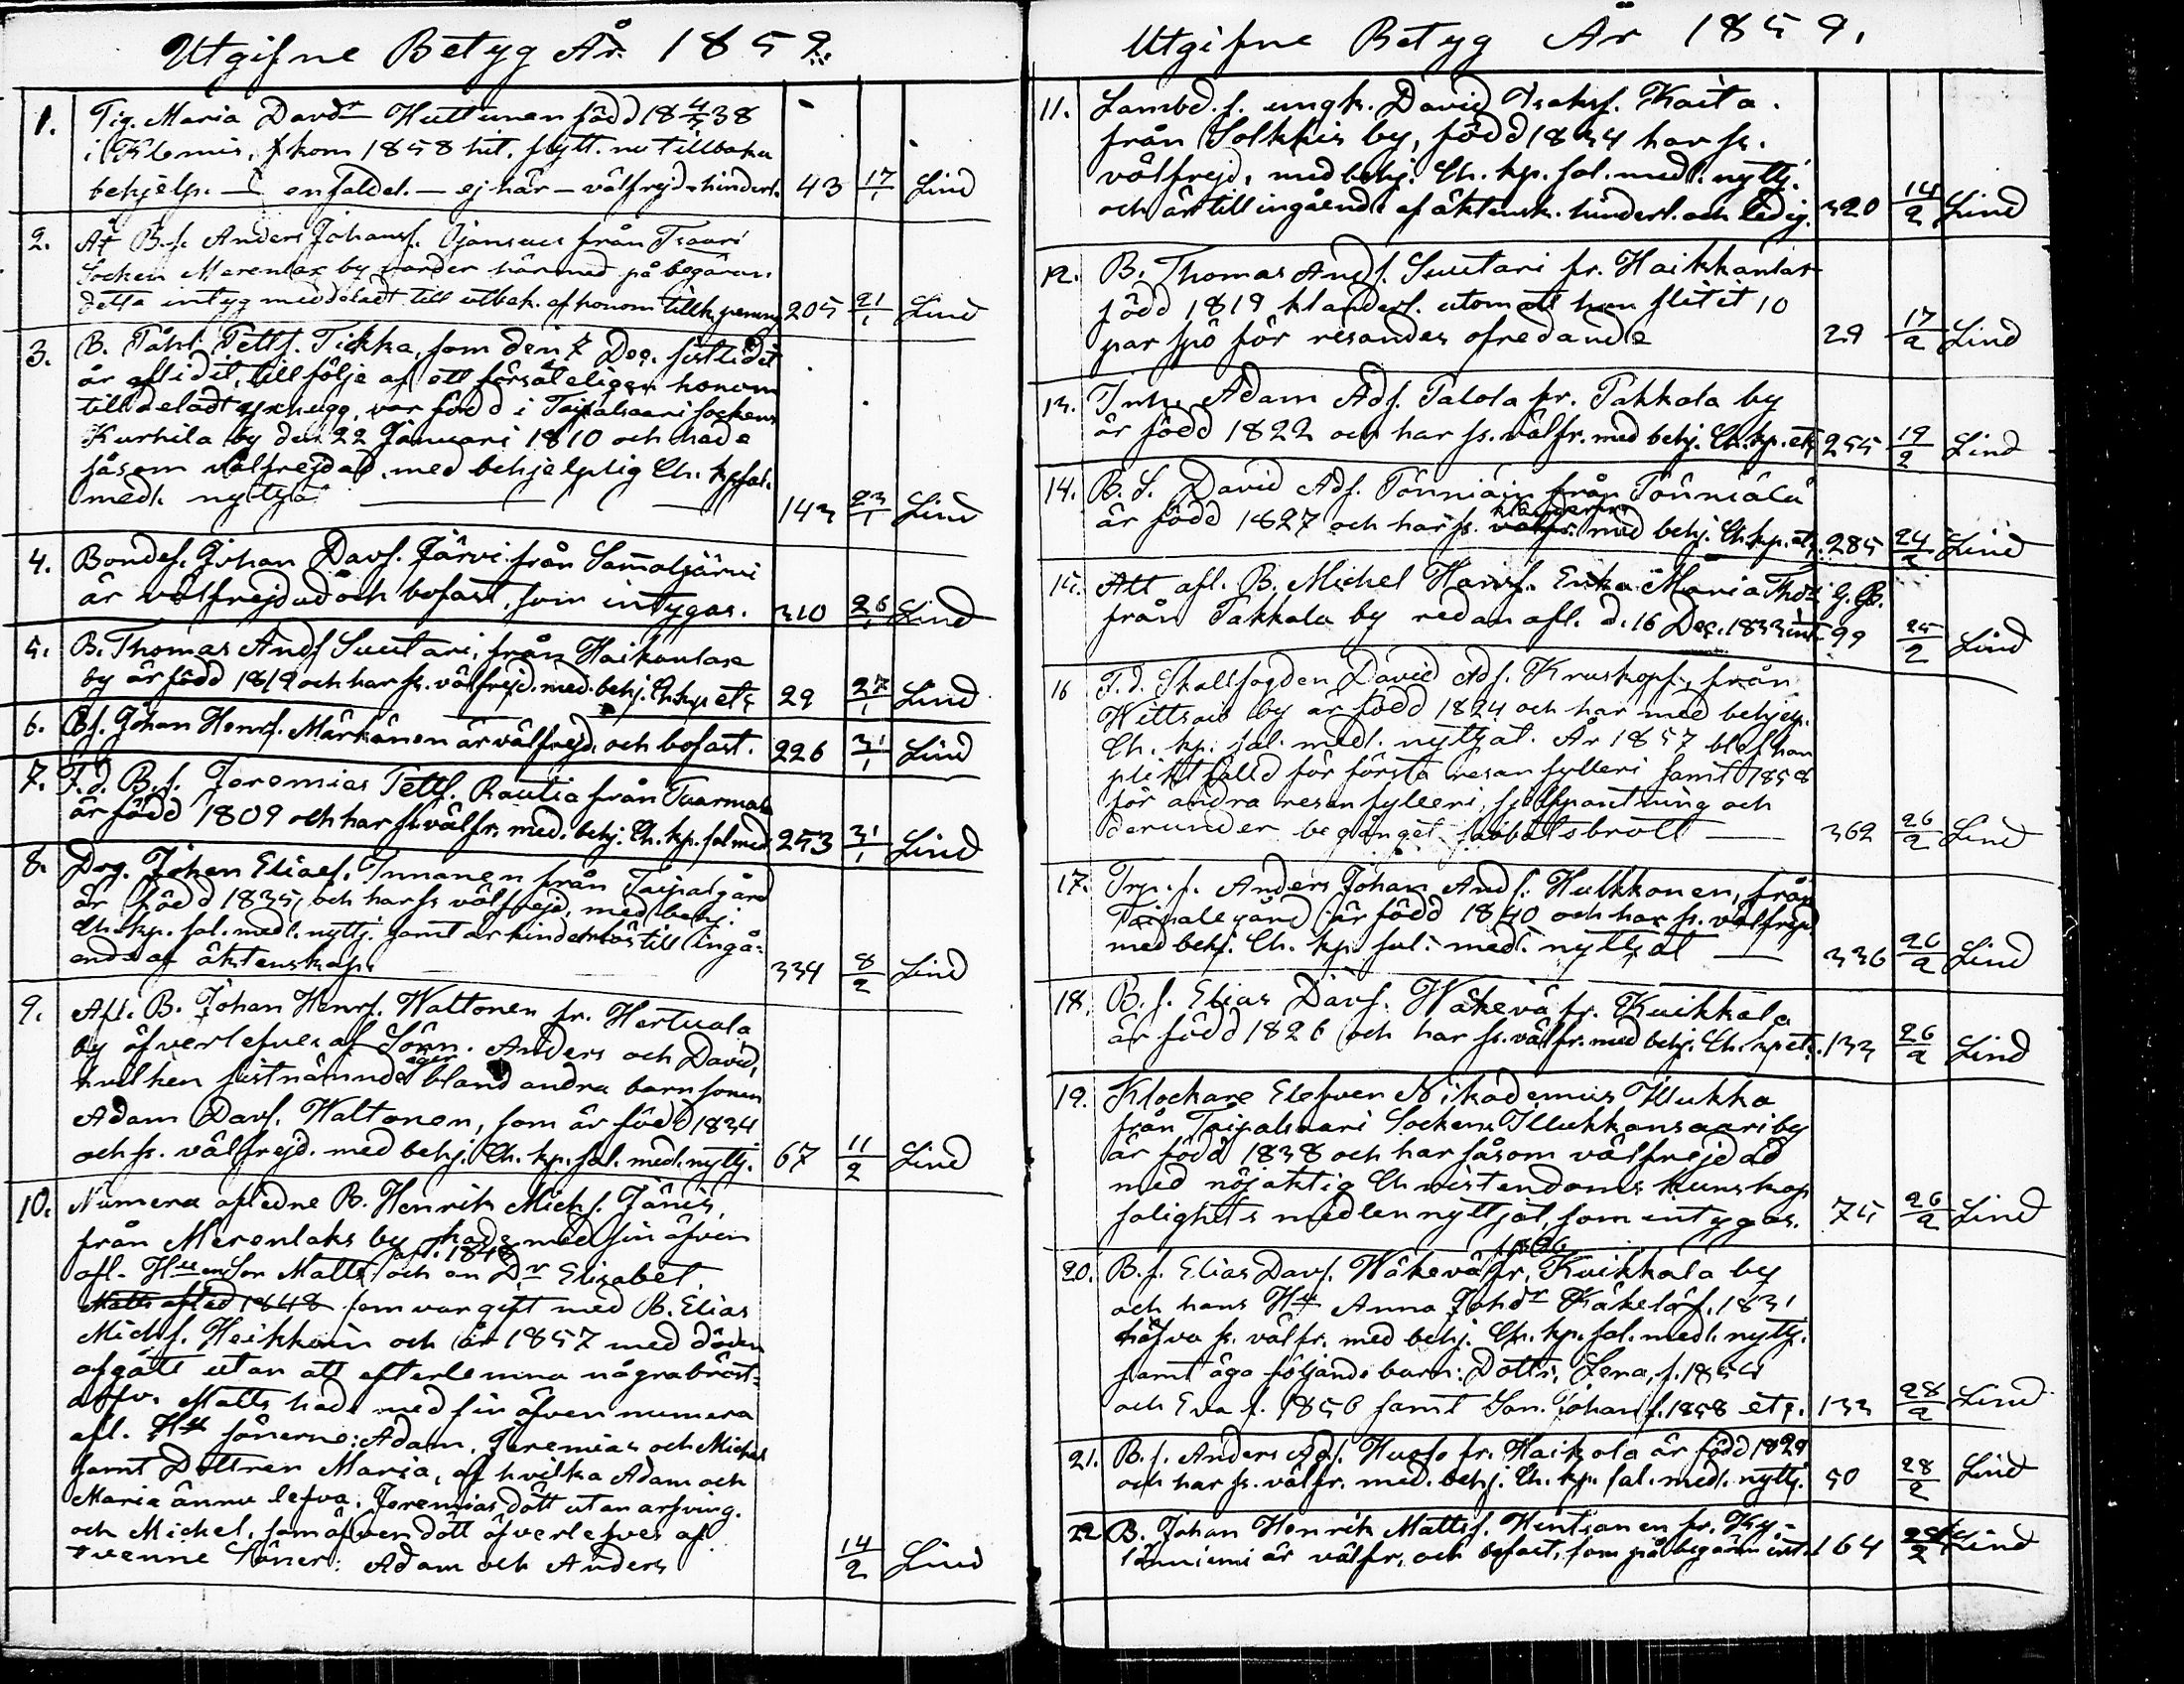 Utgifne Betyg År 1859.
1. Pig. Maria Davdr Huttunen född 18 4/3 38
i Klemis, kom 1858 hit, flytt. nu tillbaka
behjelp. — enfaldel. — ej här — välfrejd. hinderl. 43 17/1 Lind
2. At B.s. Anders Johans. från
Socken Merenlax by varder härmed på begäran
detta intyg meddeladt till utbek. af honom tillk. penning 205 21/1 Lind
3. B. Påhl Petts. Tickka, som den 7 Dec. sistlidit
är aflidit, till följe af ett försåteligen honom
tilldeladt yxhugg, var född i Taipalsaari sockens
Kurhila by den 22 Januari 1810 och hade
såsom välfrejdad med behjelplig Ch. kp sal.
medl. nyttja 143 23/1 Lind
4. Bondes. Johan Davs. Järvi från Sammaljärvi
är välfrejdad och bofast, som intygas. 310 26/1 Lind
5. B. Thomas Ands Suutari, från Haikanlax
by är född 1819 och har ss. välfrejd. med behj. Ch. kp etc 29 27/1 Lind
6. Bs. Johan Henrs. Märkänen är välfrejd. och bofast. 226 31/1 Lind
7. F.d. B.s. Jeremias Petts. Rautia från Tuarmala
är född 1809 och har ss. välfr. med. behj. Ch. kp. sal med 253 31/1 Lind
8. Drg. Johan Elias. Innanen från Taipalgård
är född 1835, och har ss välfrejd, med behj.
Ch. kp. sal. medl. nyttj. samt är hinderlös till ingå-
ende af äktenskap. 334 8/2 Lind
9. Afl. B. Johan Henrs. Waltonen fr. Hertuala
by öfverlefves af Sönn. Anders och David,
hvilken sistnämnde äger bland andra barn sonen
Adam Davs. Waltonen, som är född 1834
och ss. välfrejd. med behj. Ch. kp. sal. medl. nyttj. 67 11/2 Lind
10. Numera aflidne B. Henrik Michs. Jänis,
från Merenlaks by hade med sin äfven
afl. Hu en Son Matts afl. 1848 och en Dr Elisabet
Matts afled 1848 som var gift med B. Elias
Michs. Heikkoin och år 1857 med döden
afgått utan att efterlemna några bröst-
arfv. Matts hade med sin äfven numera
afl. Hu sönerne: Adam, Jeremias och Michel
samt Dottren Maria, af hvilka Adam och
Maria ännu lefva. Jeremias dött utan arfving.
och Michel, som äfven dött öfverlefves af
tvenne Söner: Adam och Anders 14/2 Lind
Utgifne Betyg År 1859.
11. Landbd. s. ungk. David Isaks. Kaita.
från Solkkis by, född 1834 har ss.
välfrejd. med behj. Ch. kp. sal. medl. nyttj.
och är till ingående af äktensk. hinderl. och ledig. 320 14/2 Lind
12. B. Thomas Ands. Suutari fr. Haikkanlax
född 1819 klanderl. utom att han slitit 10
par spö för resandes ofredande 29 17/2 Lind
13. Inh. Adam Ads. Talola fr. Pakkala by
är född 1822 och har ss. välfr. med behj. Ch. kp. etc 255 19/2 Lind
14. B.S. David Ads. Tönniäin från Tönniälä
är född 1827 och har ss. välfr. med behj. Ch. kp. etc. 285 24/2 Lind
15. Att afl. B. Michel Hans. Enka Maria Thdr G.B.
från Pakkala by redan afl. d. 16 Dec. 1833 int. 99 25/2 Lind
16 F.d. Skallfogden David Ads. Kruskopf, från
Wittsais by är född 1824 och har med behjelp.
Ch. kp. sal. medl. nyttjat. År 1857 blef han
pliktfälld för första resan fylleri samt 1858
för andra resan fylleri, sjelfpantning och
derunder begånget sabbatsbrott — 362 26/2 Lind
17. Trp. s. Anders Johan Ands. Hulkkonen, från
Taipalegård är född 1840 och har ss. välfrejd
med behj. Ch. kp. sal. medl. nyttjat — 336 26/2 Lind
18. B.s. Elias Davs. Wäkevä fr. Kuikkala
är född 1826 och har ss. välfr. med behj. Ch. kp etc. 133 26/2 Lind
19. Klockare Elefven Nikodemus Illukka
från Taipalsaari Socken Illukkansaari by
är född 1838 och har såsom välfrejdad
med nöjaktig Christendoms kunskap
salighets medlen nyttjat, som intygas. 75 26/2 Lind
20. B.s. Elias Davs. Wäkevä f. 1826 fr. Kuikkala by
och hans Hu Anna Johdr Käkelä f. 1831
hafva ss. välfr. med behj. Ch. kp. sal. medl. nyttj.
samt äga följande barn: Dottr. Lena, f. 1854
och Eva f. 1856 samt Son. Johan f. 1858 etc. 133 28/2 Lind
21. B.s. Anders Ads. Husso fr. Haikola är född 1829
och har ss. välfr. med. behj. Ch. kp. sal. medl. nyttj. 50 28/2 Lind
22 B. Johan Henrik Matts. Hentsonen fr. Ky-
läniemi är välfr. och bofast, som på begäran int. 164 28/2 Lind